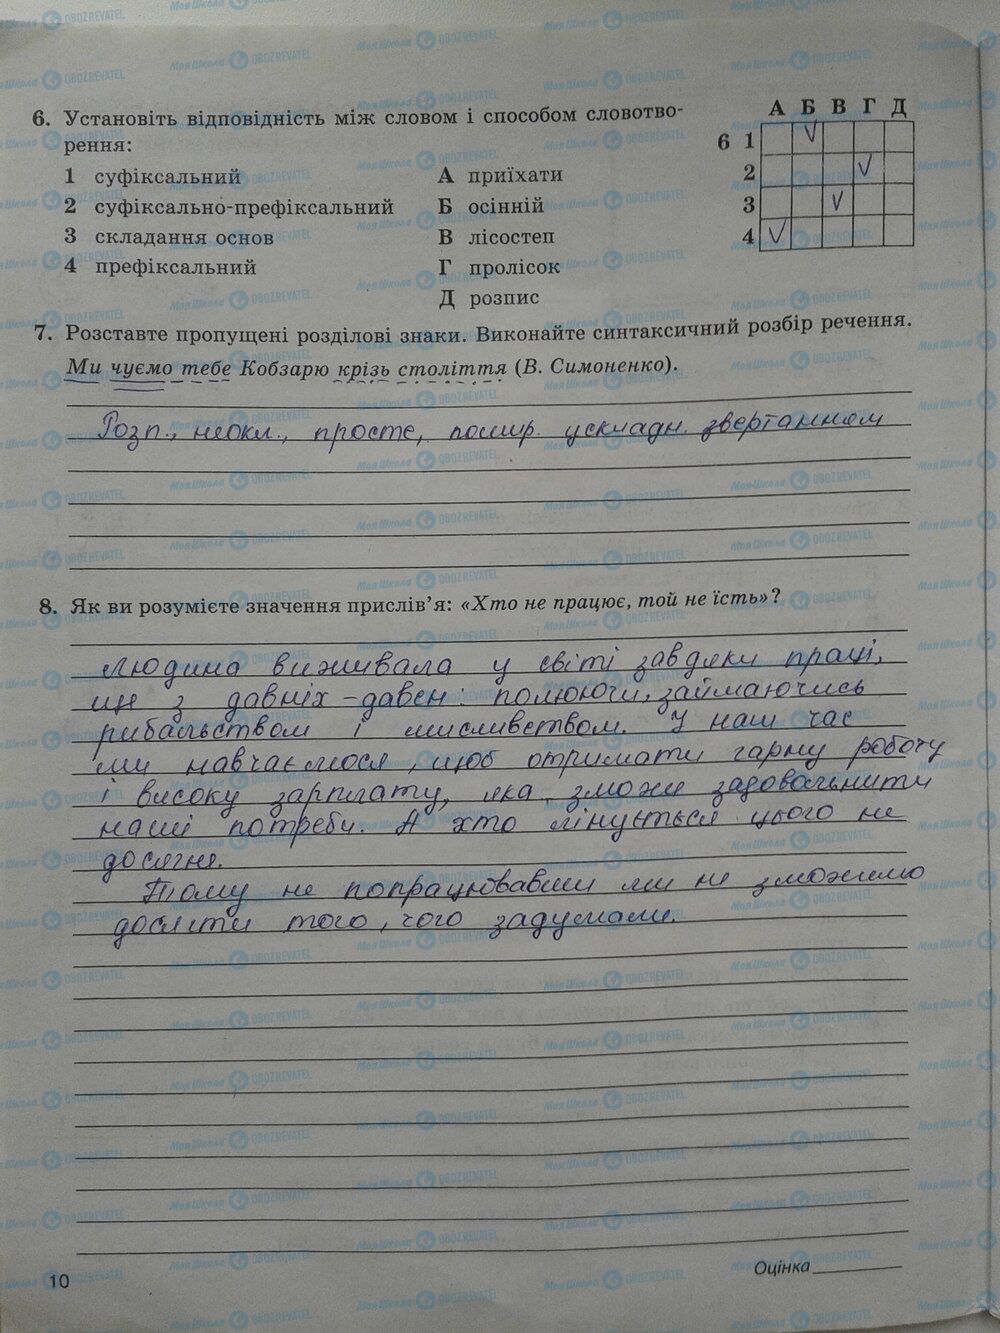 6. Установіть відповідність між словом і способом словотво-
рення:
А Б В Г Д
6 1
2
3
4
1 суфіксальний
2 суфіксально-префіксальний
3 складання основ
4 префіксальний
А приїхати
Б осінній
В лісостеп
Г пролісок
Д розпис
7. Розставте пропущені розділові знаки. Виконайте синтаксичний розбір речення.
Ми чуємо тебе Кобзарю крізь століття (В. Симоненко).
Розп., неокл., просте, пошир. ускладн. звертанням
8. Як ви розумієте значення прислів'я: «Хто не працює, той не їсть»?
Людина виживала у світі завдяки праці,
ще з давніх-давен: полюючи, займаючись
рибальством і мисливством. У наш час
ми навчаємося, щоб отримати гарну роботу
і високу зарплату, яка зможе задовольнити
наші потреби. А хто лінується цього не
досягне.
Тому не попрацювавши ми не зможемо
досягти того, чого задумали.
10
Оцінка
МояШкола OBOZREVATEL